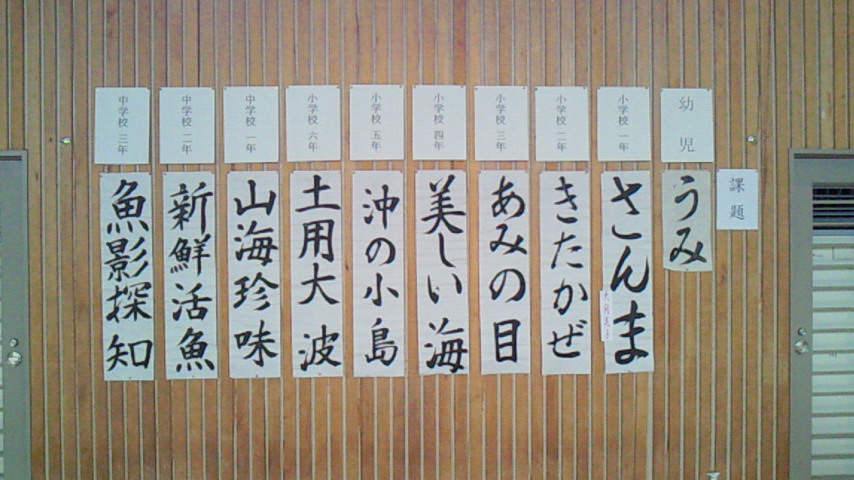 課題
幼児
うみ
小学校 一年
さんま
小学校 二年
きたかぜ
小学校 三年
あみの目
小学校 四年
美しい海
小学校 五年
沖の小島
小学校 六年
土用大波
中学校 一年
山海珍味
中学校 二年
新鮮活魚
中学校 三年
魚影探知